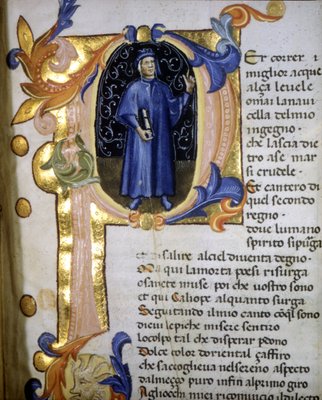 PEr correr i
miglior acque
alça leuele
omai lanaui
cella delmio
ingegno·
che lascia die
tro ase mar
si crudele·
Et cantero di
quel secondo
regno·
doue lumano
spirito sipurga
Et disalire alciel diuenta degno·
Ma qui lamorta poesi risurga
o sancte muse poi che uostro sono
et qui Caliope alquanto surga
Seguitando ilmio canto cōql sono
di cui lepiche misere sentiro
locolpo tal che disperar pdono
Dolce color doriental çaffiro
che sacoglieua nelsereno aspecto
dalmeçço puro infin alprimo giro
Agliocchi miei ricomincio